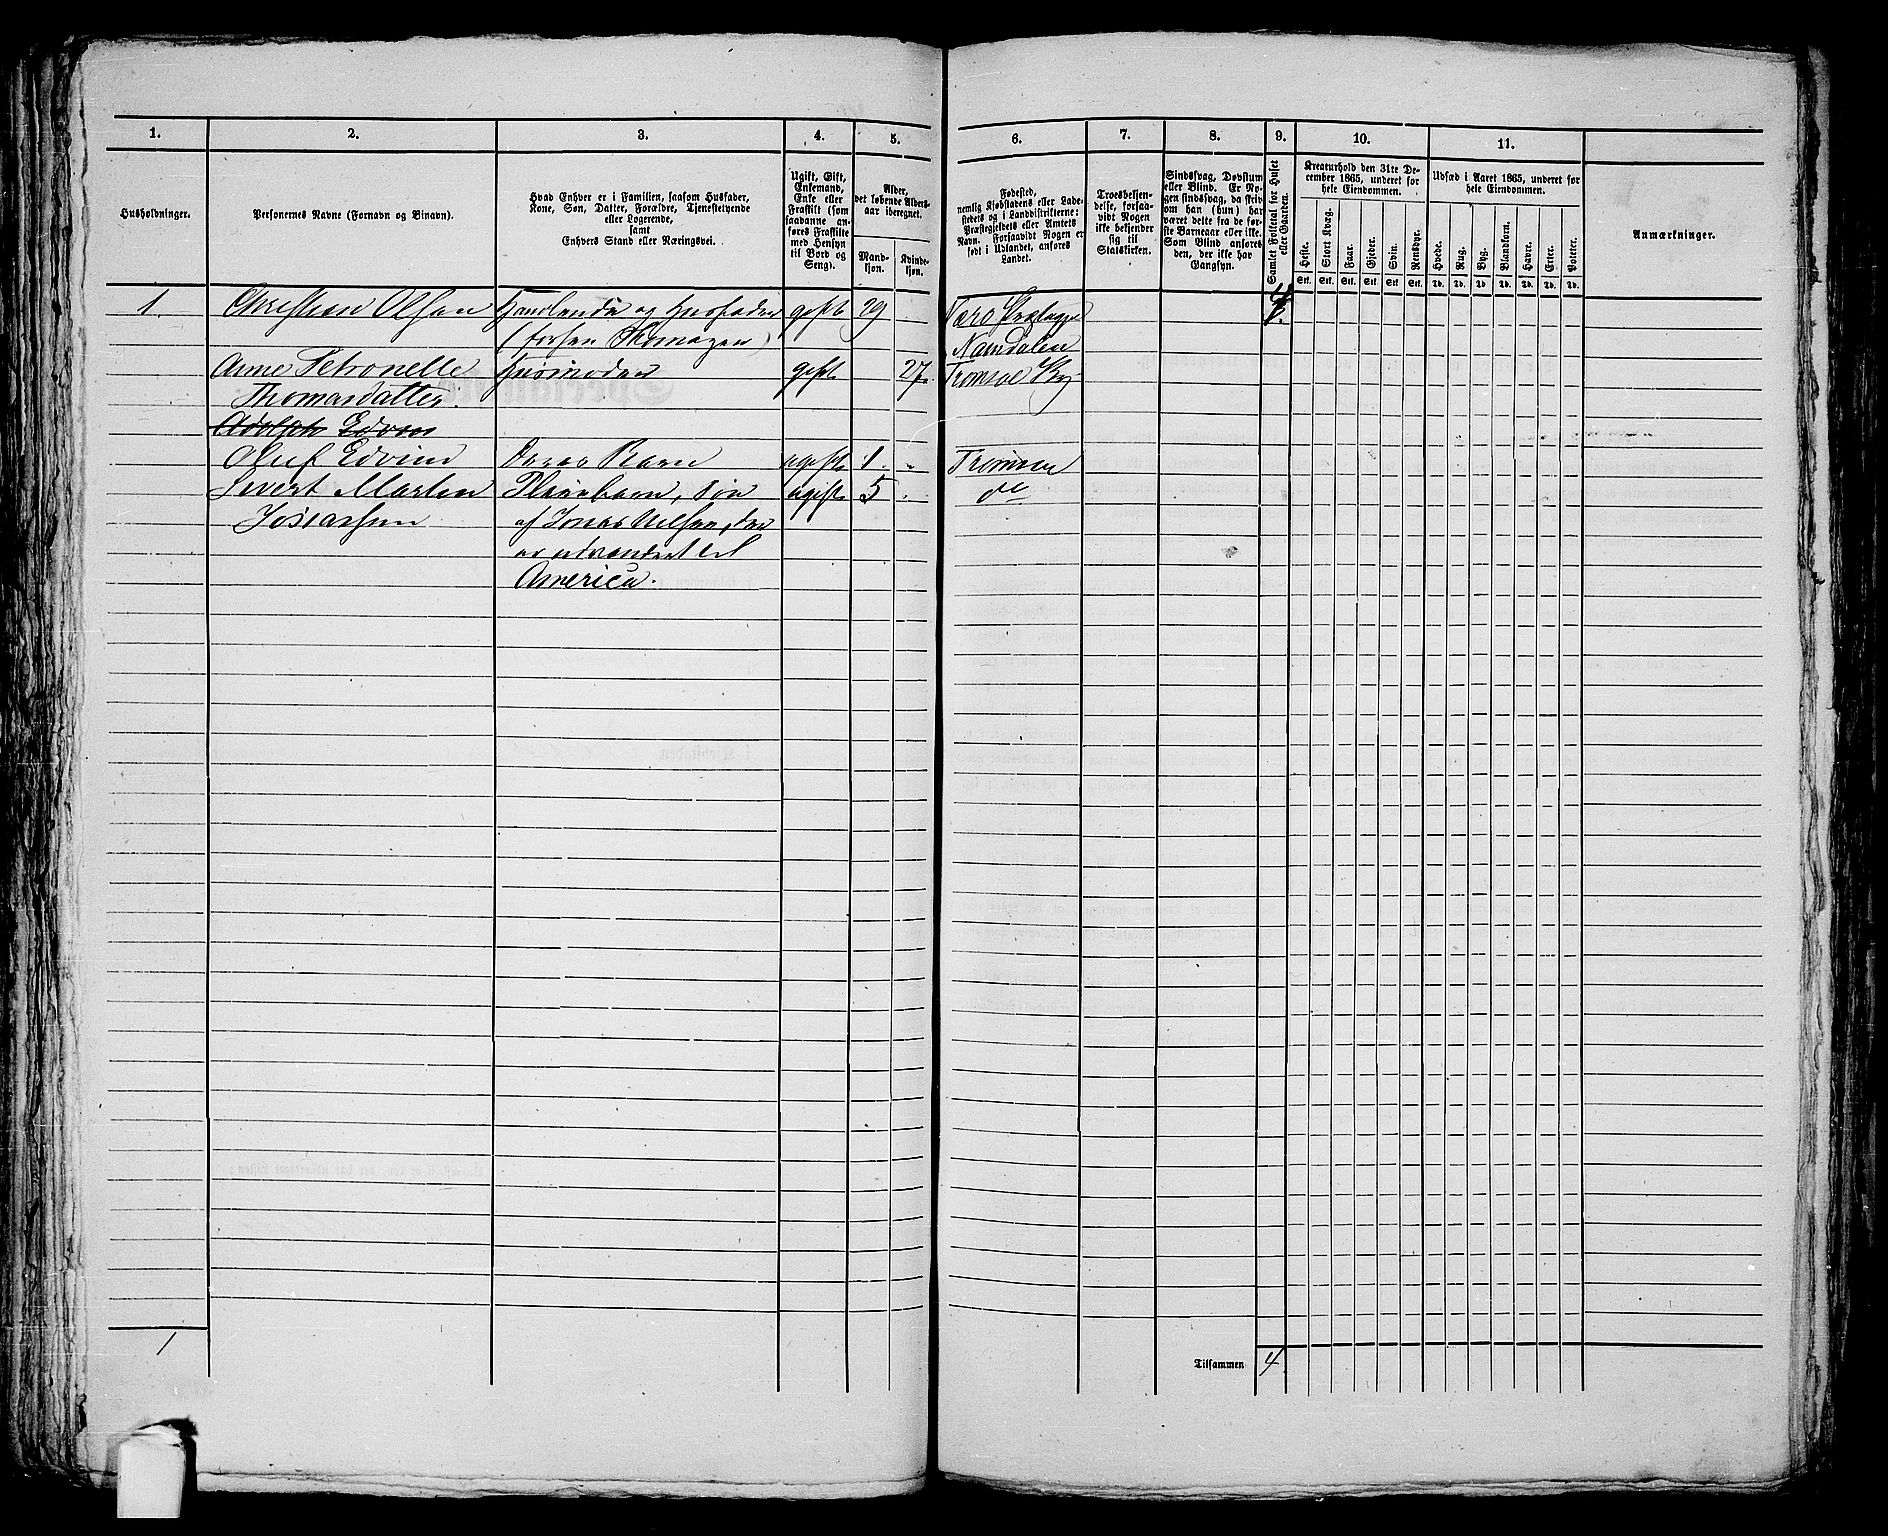 1. 2. 3. 4. 5. 6. 7. 8. 9. 10. 11.
Husholdninger.
Personernes Navne (Fornavn og Binavn).
Hvad Enhver er i Familien, saasom Husfader,
Kone, Søn, Datter, Forældre, Tjenestetyende
eller Logerende,
samt
Enhvers Stand eller Næringsvei.
Ugift, Gift,
Enkemand,
Enke eller
Fraskilt (som
saadanne an-
føres Fraskilte
med Hensyn
til Bord og
Seng).
Alder,
det løbende Alders-
aar iberegnet.
Mand-
kjøn.
Kvinde-
kjøn.
Fødested,
nemlig Kjøbstadens eller Lade-
stedets og i Landdistrikterne:
Præstegjeldets eller Amtets
Navn. Forsaavidt Nogen er
født i Udlandet, anføres
Landet.
Troesbekjen-
delse, forsaa-
vidt Nogen
ikke bekjender
sig til
Statskirken.
Sindssvag, Døvstum
eller Blind. Er No-
gen sindssvag, da skriv
om han (hun) har
været dette fra de før-
ste Barneaar eller ikke.
Som Blind anføres
den, der ikke har
Gangsyn.
Samlet Folketal for Huset
eller Gaarden.
Kreaturhold den 31te De-
cember 1865, underet for
hele Eiendommen.
Heste. Stort Kvæg. Faar. Gjeder. Svin. Rensdyr.
Stk. Stk. Stk. Stk. Stk. Stk.
Udsæd i Aaret 1865, underet for
hele Eiendommen.
Hvede. Rug. Byg. Blandkorn. Havre. Erter. Poteter.
Td. Td. Td. Td. Td. Td. Td.
Anmærkninger.
1. Christian Olsen Handlende og Husfader gift 29 Nærø Præstegj 4
(forhen Skomager) Namdalen
Anne Petronelle Husmoder gift 27 Tromsøe By
Thomasdatter.
Adolph Edvin
Oluf Edvin Deres Barn ugift 1. Tromsøe
Sivert Martin Pleiebarn, søn ugift 5 do
Josiassen af Nilsen, der
er udvandret til
America.
1 Tilsammen 4